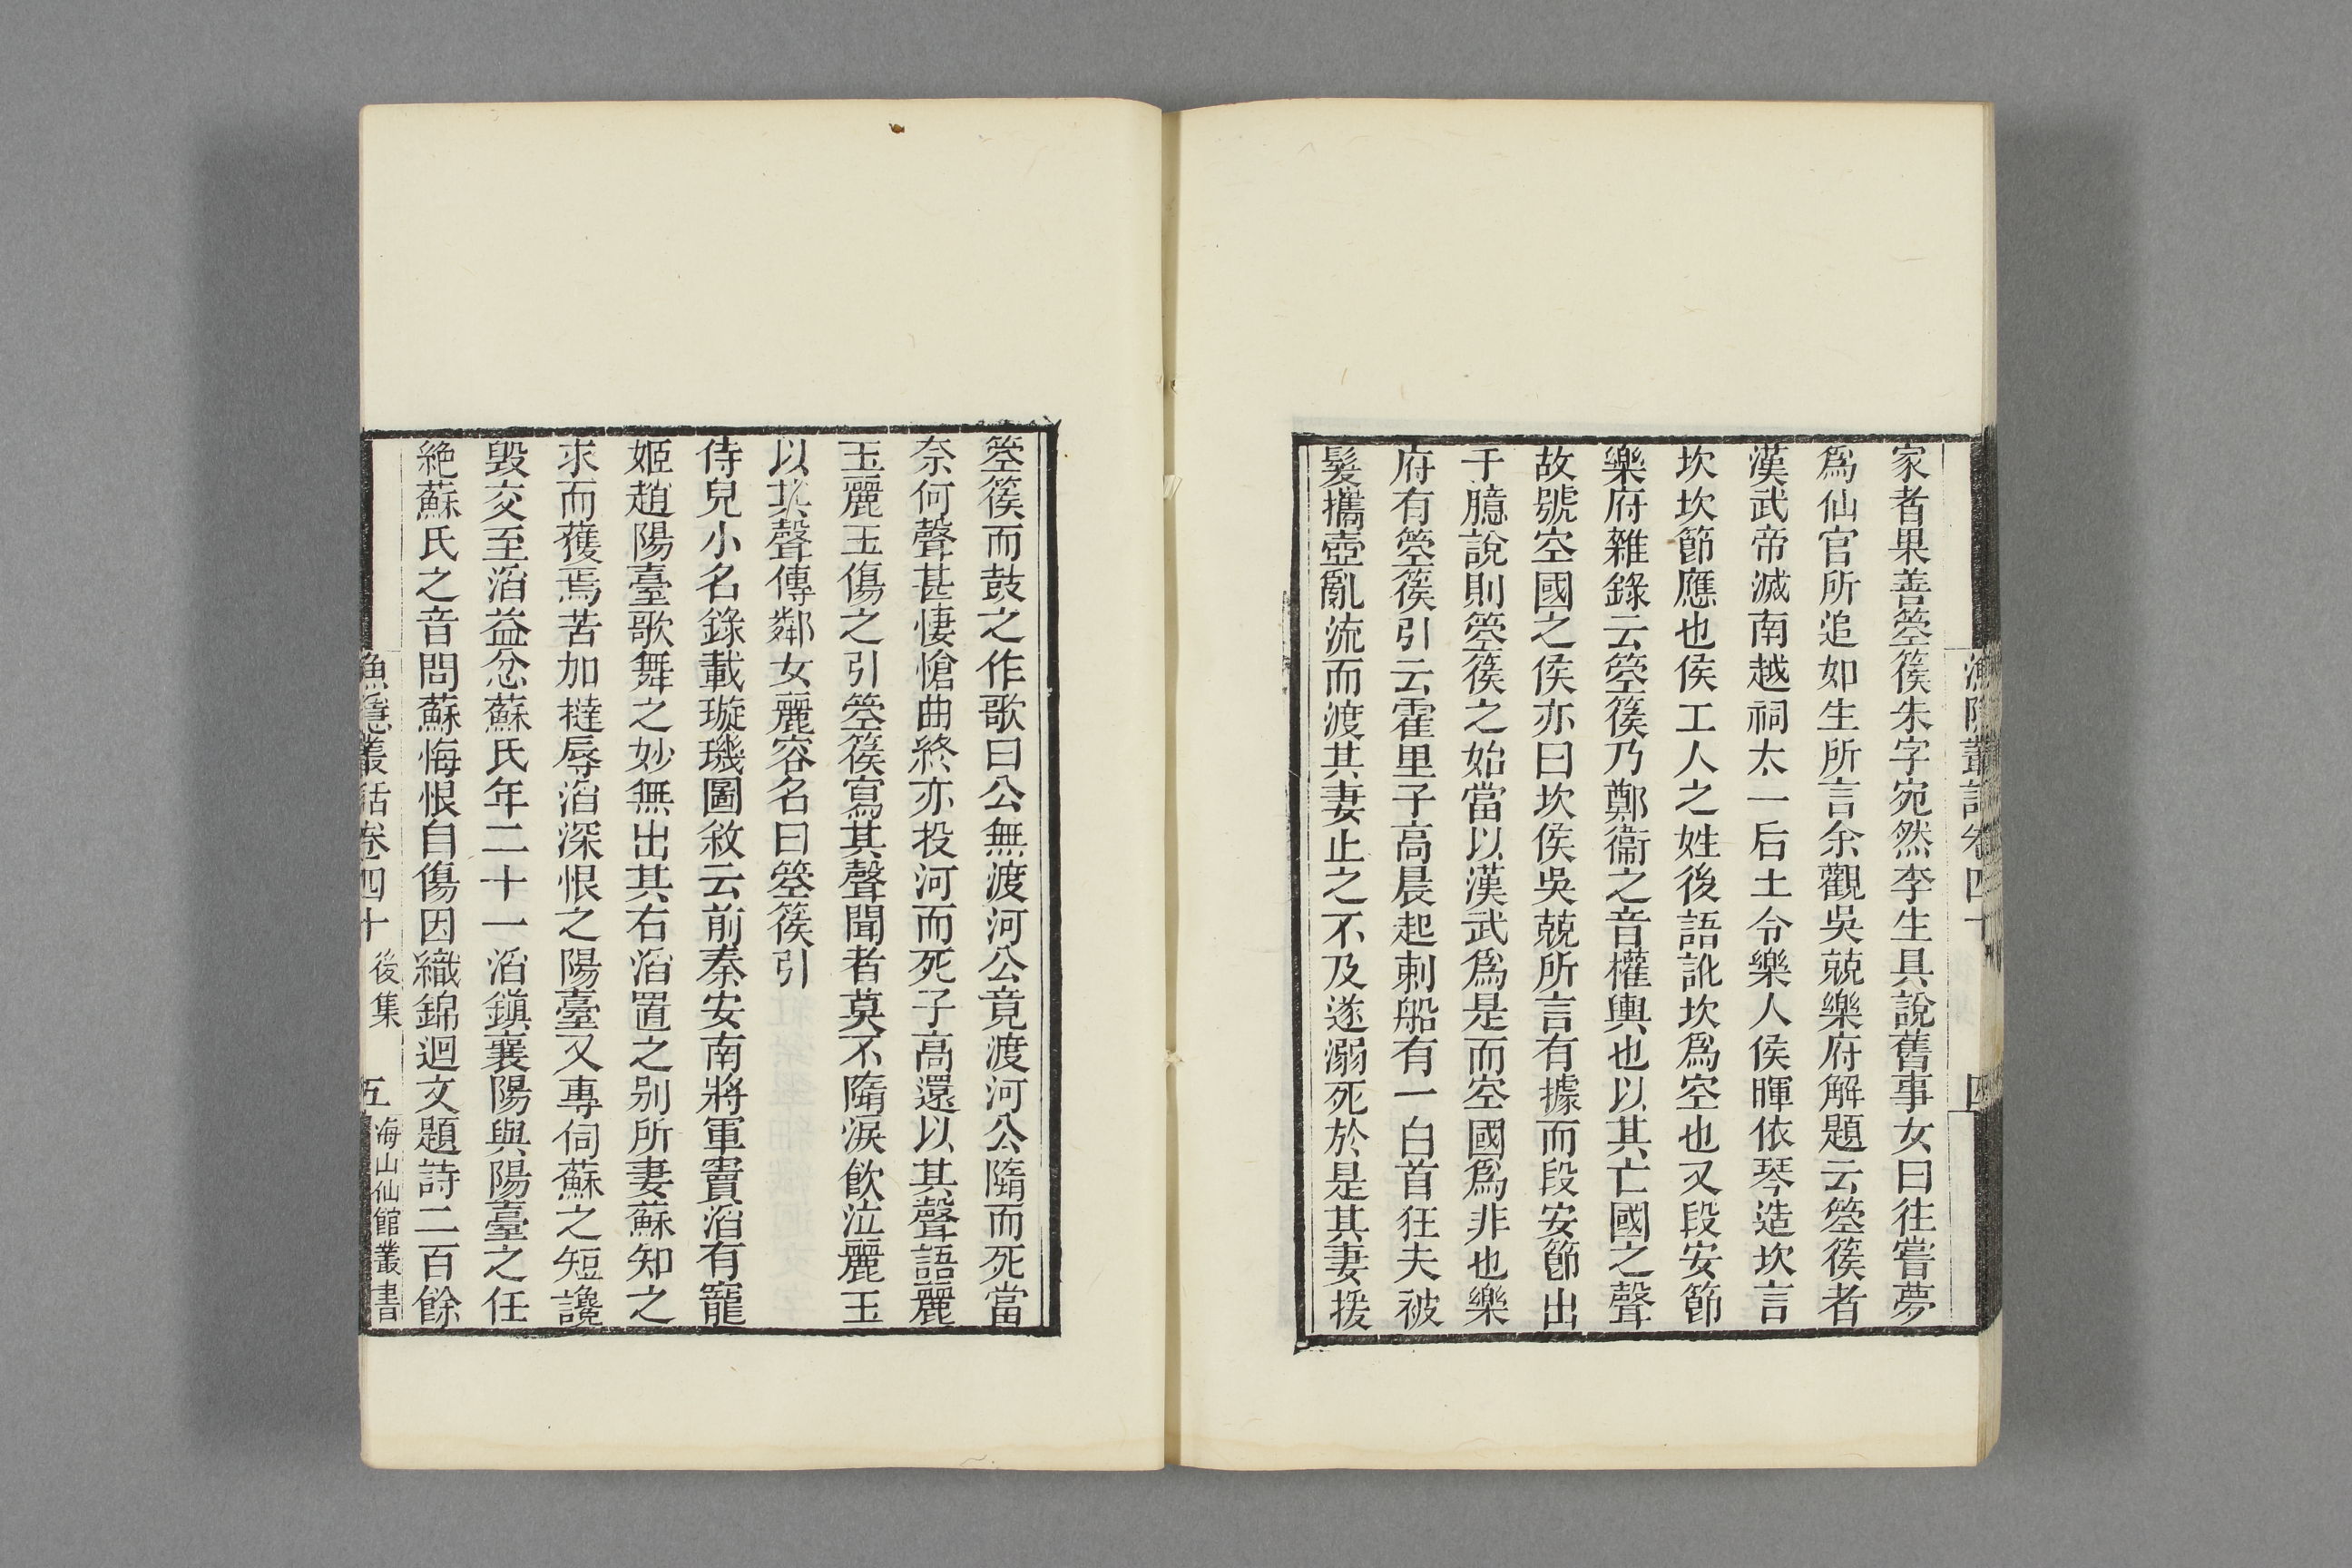 漁隱叢話卷四十
四
家者果善箜篌朱字宛然李生具說舊事女曰往嘗夢
爲仙官所追如生所言余觀吳兢樂府解題云箜篌者
漢武帝滅南越祠太一后土令樂人侯暉依琴造坎言
坎坎節應也侯工人之姓後語訛坎爲空也又段安節
樂府雜錄云箜篌乃鄭衞之音權輿也以其亡國之聲
故號空國之侯亦曰坎侯吳兢所言有據而段安節出
于臆說則箜篌之始當以漢武爲是而空國爲非也樂
府有箜篌引云霍里子高晨起刺船有一白首狂夫被
髮攜壺亂流而渡其妻止之不及遂溺死於是其妻援
箜篌而鼓之作歌曰公無渡河公竟渡河公隨而死當
奈何聲甚悽愴曲終亦投河而死子高還以其聲語麗
玉麗玉傷之引箜篌寫其聲聞者莫不隋淚飮泣麗玉
以其聲傳鄰女麗容名曰箜篌引
侍兒小名錄載璇璣圖敘云前秦安南將軍竇滔有寵
姬趙陽臺歌舞之妙無出其右滔置之别所妻蘇知之
求而獲焉苦加撻辱滔深恨之陽臺又專伺蘇之短讒
毀交至滔益忿蘇氏年二十一滔鎭襄陽與陽臺之任
絶蘇氏之音問蘇悔恨自傷因織錦迴文題詩二百餘
漁隱叢話卷四十 後集 五 海山仙館叢書